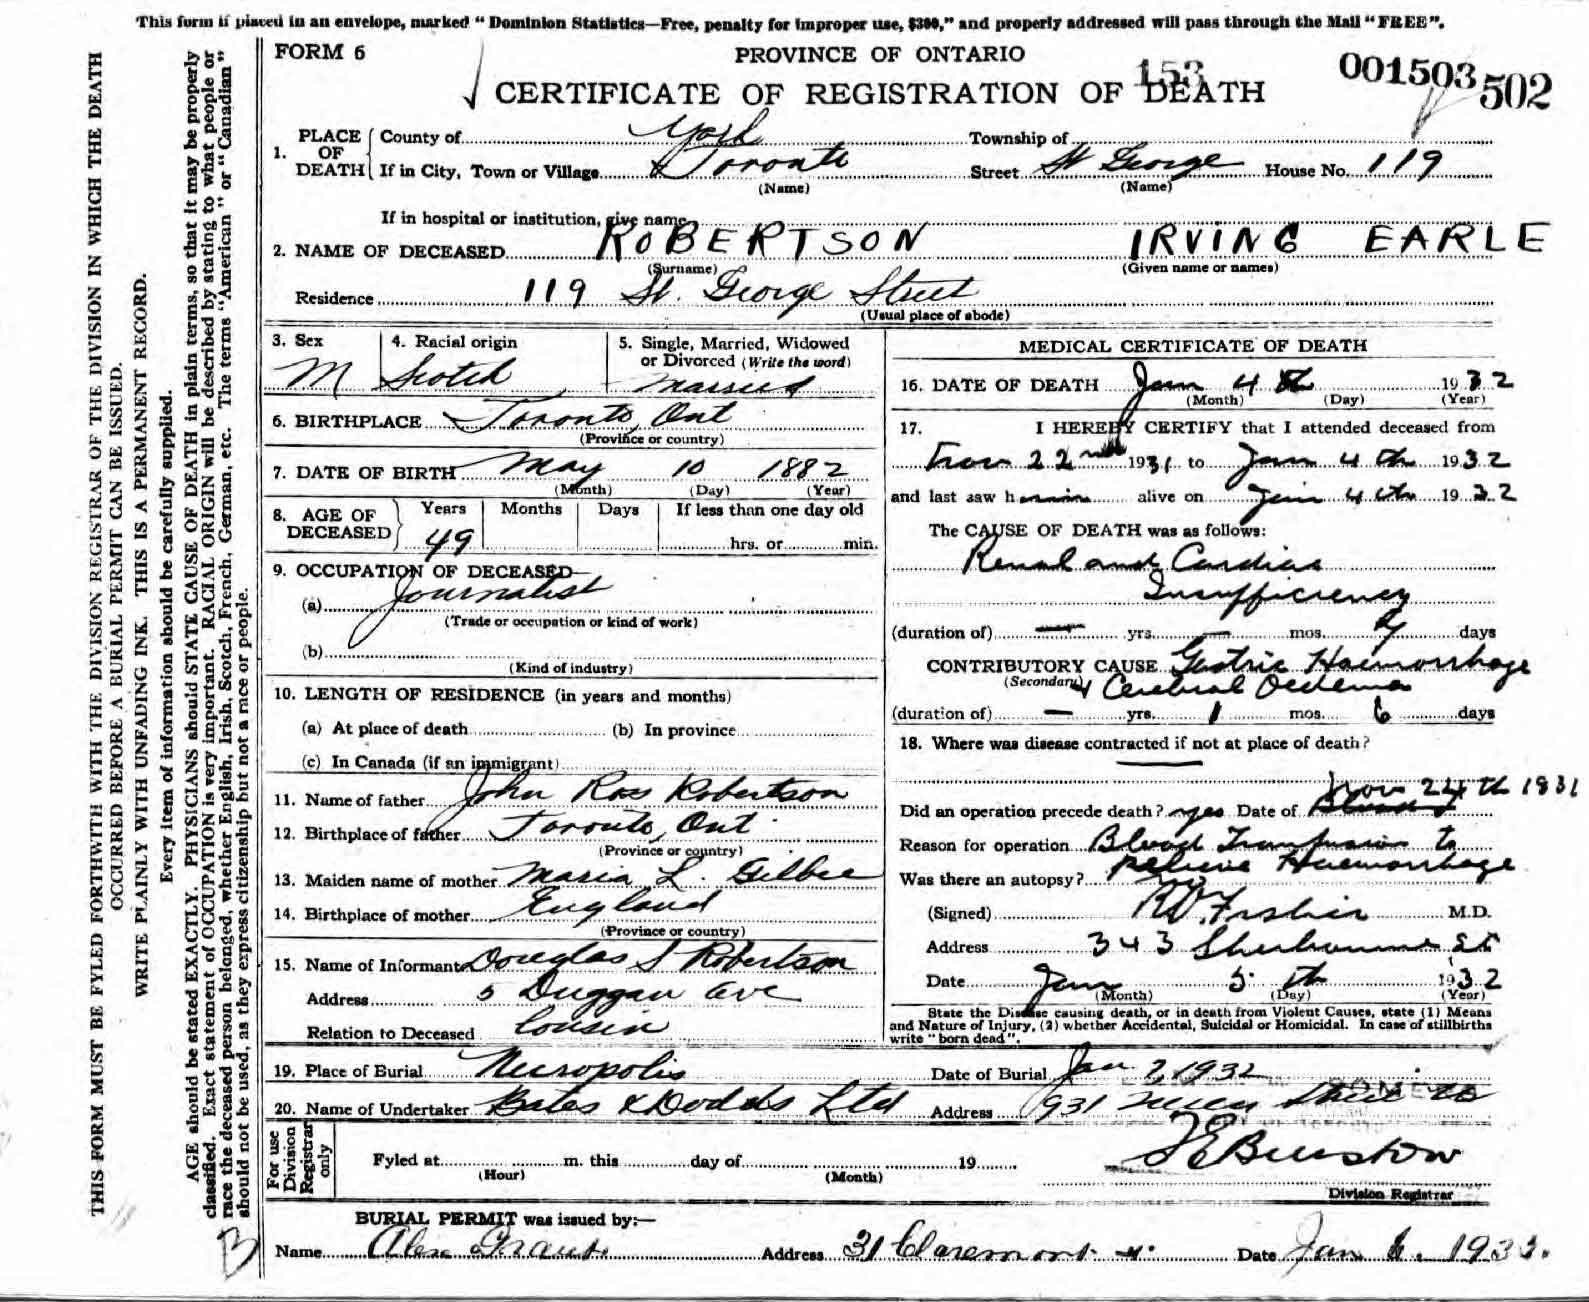 This form if placed in an envelope, marked "Dominion Statistics—Free, penalty for improper use, $300," and properly addressed will pass through the Mail "FREE".
THIS FORM MUST BE FYLED FORTHWITH WITH THE DIVISION REGISTRAR OF THE DIVISION IN WHICH THE DEATH
OCCURRED BEFORE A BURIAL PERMIT CAN BE ISSUED.
WRITE PLAINLY WITH UNFADING INK. THIS IS A PERMANENT RECORD.
Every item of information should be carefully supplied.
AGE should be stated EXACTLY. PHYSICIANS should STATE CAUSE OF DEATH in plain terms, so that it may be properly
classified. Exact statement of OCCUPATION is very important. RACIAL ORIGIN will be described by stating to what people or
race the deceased person belonged, whether English, Irish, Scotch, French, German, etc. The terms "American" or "Canadian"
should not be used, as they express citizenship but not a race or people.
B
FORM 6
PROVINCE OF ONTARIO
153
001503 502
CERTIFICATE OF REGISTRATION OF DEATH
1. PLACE OF DEATH
County of York Township of
If in City, Town or Village Toronto Street St George House No. 119
(Name) (Name)
If in hospital or institution, give name
2. NAME OF DECEASED ROBERTSON IRVING EARLE
(Surname) (Given name or names)
Residence 119 St. George Street
(Usual place of abode)
3. Sex 4. Racial origin 5. Single, Married, Widowed
or Divorced (Write the word)
M Scotch Married
6. BIRTHPLACE Toronto, Ont
(Province or country)
7. DATE OF BIRTH May 10 1882
(Month) (Day) (Year)
8. AGE OF DECEASED Years Months Days If less than one day old
49 hrs. or min.
9. OCCUPATION OF DECEASED—
(a) Journalist
(Trade or occupation or kind of work)
(b)
(Kind of industry)
10. LENGTH OF RESIDENCE (in years and months)
(a) At place of death (b) In province
(c) In Canada (if an immigrant)
11. Name of father John Ross Robertson
12. Birthplace of father Toronto, Ont
(Province or country)
13. Maiden name of mother Maria L. Gilbee
14. Birthplace of mother England
(Province or country)
15. Name of Informant Douglas S Robertson
Address 5 Duggan Ave
Relation to Deceased Cousin
MEDICAL CERTIFICATE OF DEATH
16. DATE OF DEATH Jan 4th 1932
(Month) (Day) (Year)
17. I HEREBY CERTIFY that I attended deceased from
Nov 22nd 1931 to Jan 4th 1932
and last saw him alive on Jan 4th 1932
The CAUSE OF DEATH was as follows:
Renal and Cardiac
Insufficiency
(duration of) — yrs. — mos. days
CONTRIBUTORY CAUSE Gastric Haemorrhage
(Secondary) & Cerebral Oedema
(duration of) — yrs. 1 mos. 6 days
18. Where was disease contracted if not at place of death?
—
Did an operation precede death? yes Date of Nov 24th 1931
Reason for operation Blood Transfusion to
relieve Haemorrhage
Was there an autopsy? no
(Signed) M.D.
Address 343 Sherbourne St
Date Jan 5th 1932
(Month) (Day) (Year)
State the Disease causing death, or in death from Violent Causes, state (1) Means
and Nature of Injury, (2) whether Accidental, Suicidal or Homicidal. In case of stillbirths
write "born dead".
19. Place of Burial Necropolis Date of Burial Jan 7, 1932
20. Name of Undertaker Bates & Dodds Ltd Address 931 Queen Street
For use Division Registrar only
Fyled at m. this day of 19
(Hour) (Month)
Division Registrar
BURIAL PERMIT was issued by:—
Name Alex Grant Address 31 Claremont Date Jan 6. 1932.